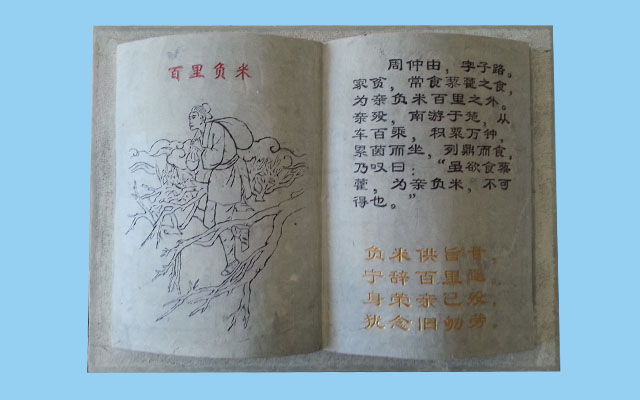 百里负米
周仲由，李子路。
家贫，常食藜藿之食，
为亲负米百里之外。
亲殁，南游于楚，从
车百乘，积粟万钟，
累茵而坐，列鼎而食，
乃叹曰：“虽欲食藜
藿，为亲负米，不可
得也。”
负米供旨甘，
宁辞百里遥。
身荣亲已殁，
犹念旧劬劳。